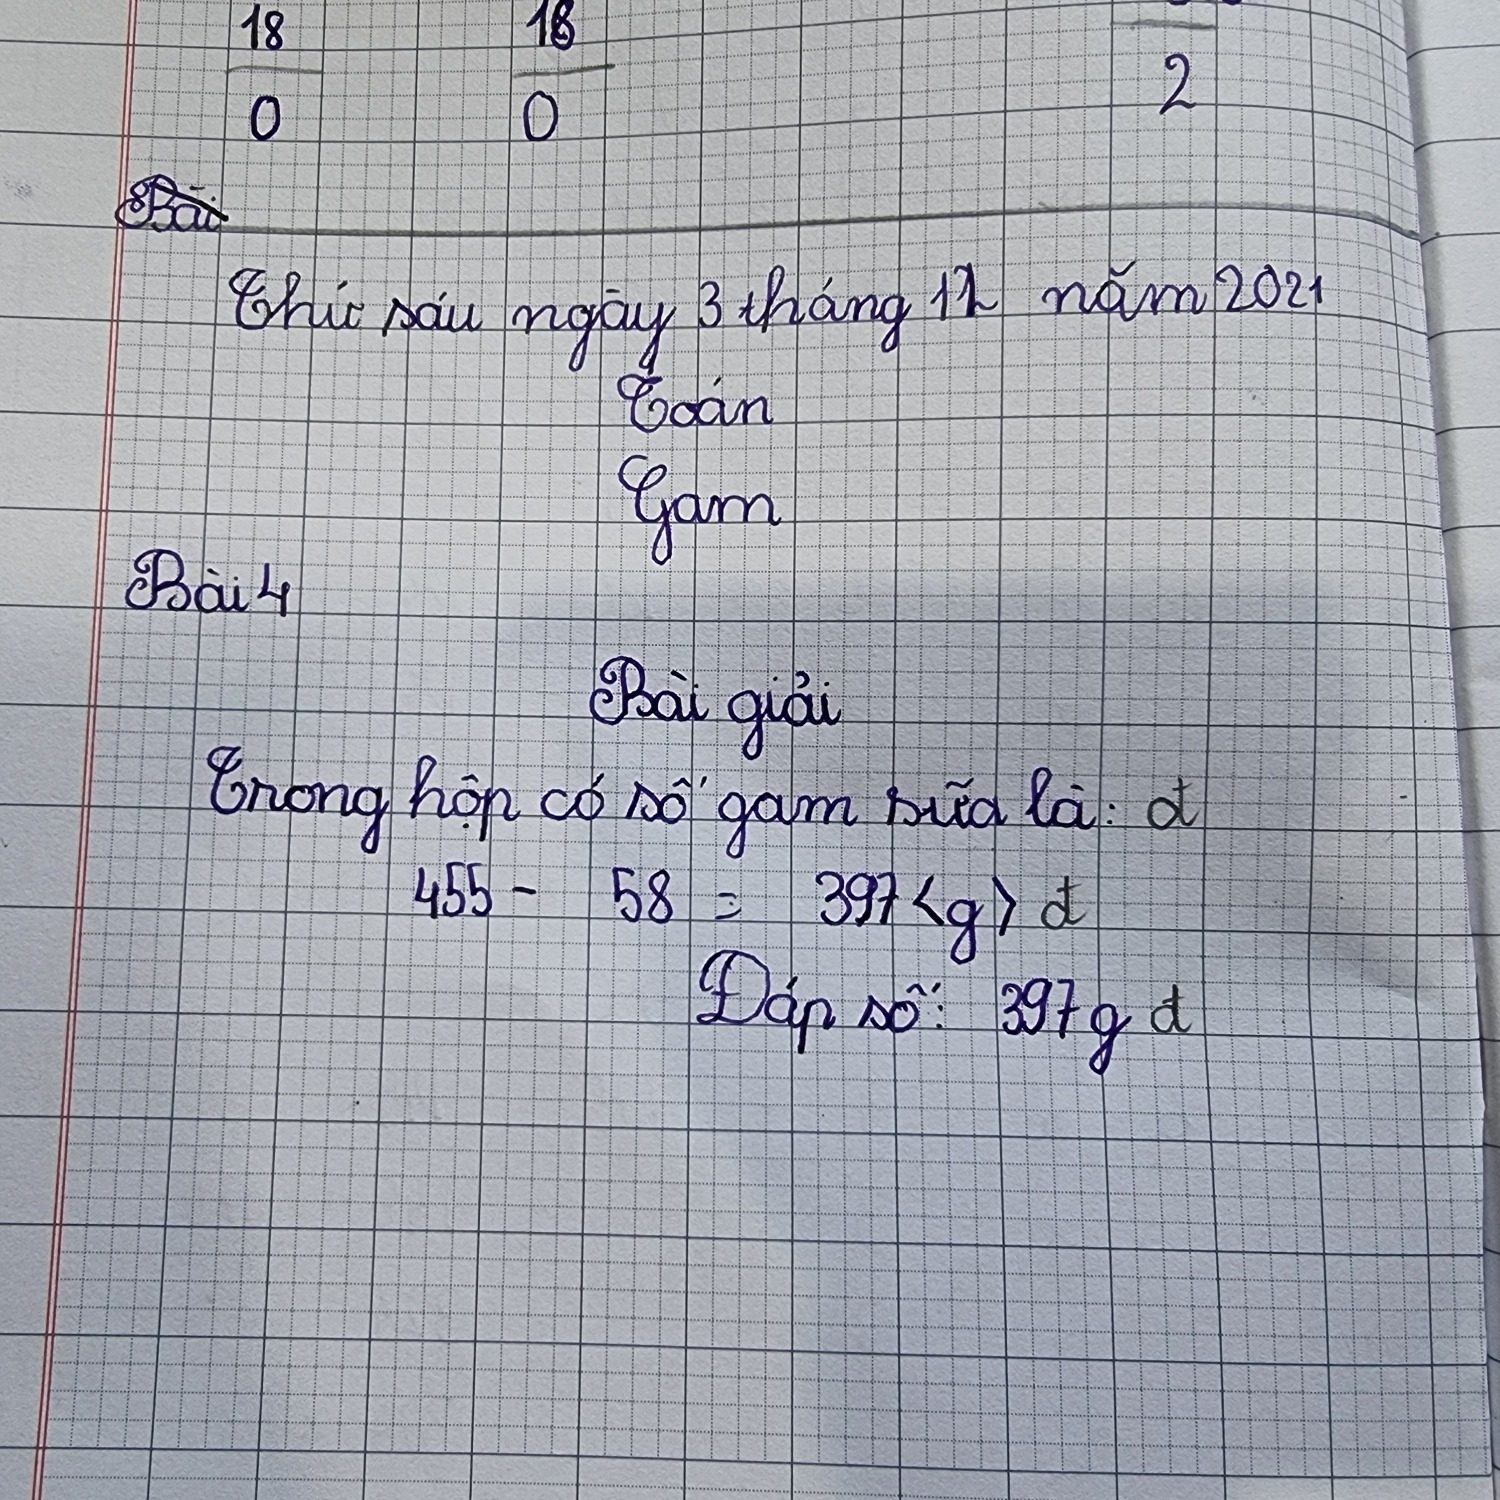 18 18
0 0 2
Bài
Thứ sáu ngày 3 tháng 12 năm 2021
Toán
Gam
Bài 4
Bài giải
Trong hộp có số gam sữa là: đ
455 - 58 = 397 <g> đ
Đáp số: 397g đ